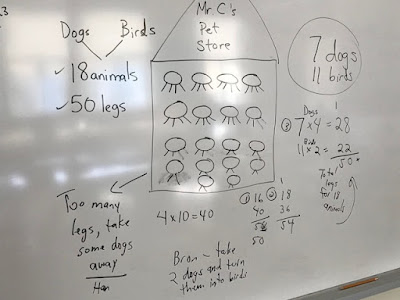 3
Dogs Birds
✓ 18 animals
✓ 50 legs
Mr. C's
Pet
Store
7 dogs
11 birds
Dogs 1
③ 7 x 4 = 28
Birds
11 x 2 = 22
50
Total
legs
for 18
animals
Too many
legs, take
some dogs
away
Han
4 x 10 = 40
① 16
40
56
50
② 18
36
54
Bran - take
2 dogs and turn
them into birds